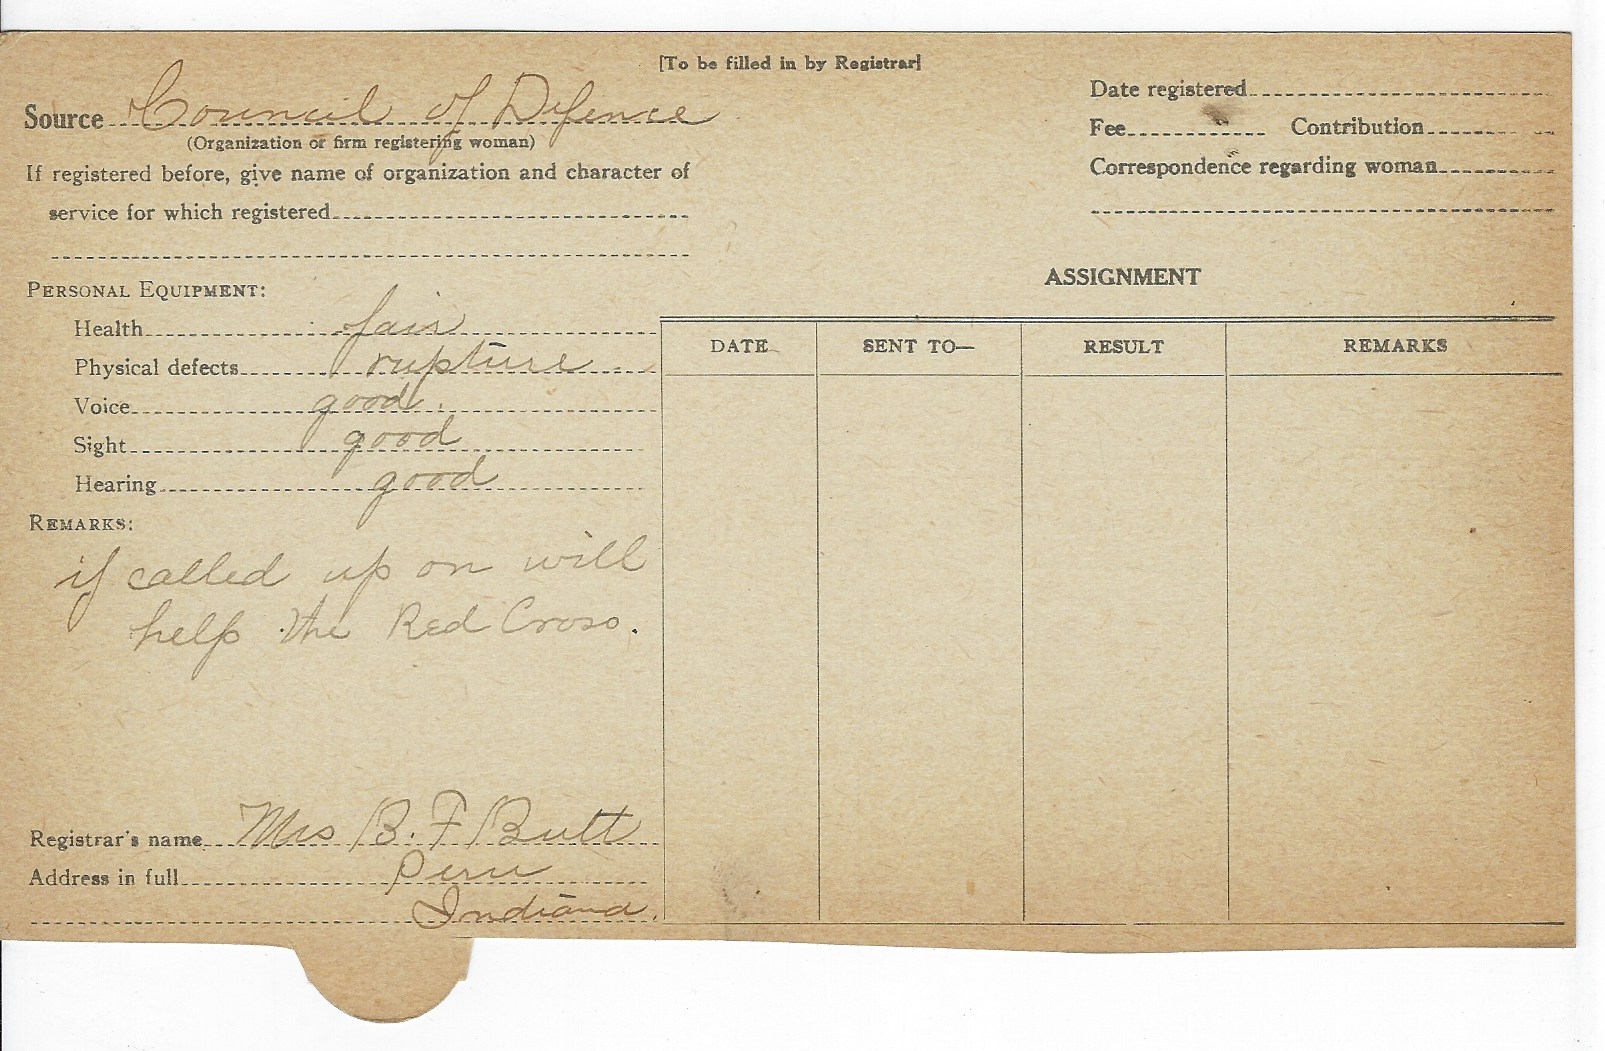 [To be filled in by Registrar]
Source Council of Defence
(Organization or firm registering woman)
If registered before, give name of organization and character of
service for which registered
Date registered
Fee Contribution
Correspondence regarding woman
PERSONAL EQUIPMENT:
Health fair
Physical defects rupture
Voice good.
Sight good
Hearing good
REMARKS:
if called up on will
help the Red Cross.
Registrar's name Mrs B. F Butt
Address in full Peru
Indiana.
ASSIGNMENT
DATE SENT TO— RESULT REMARKS